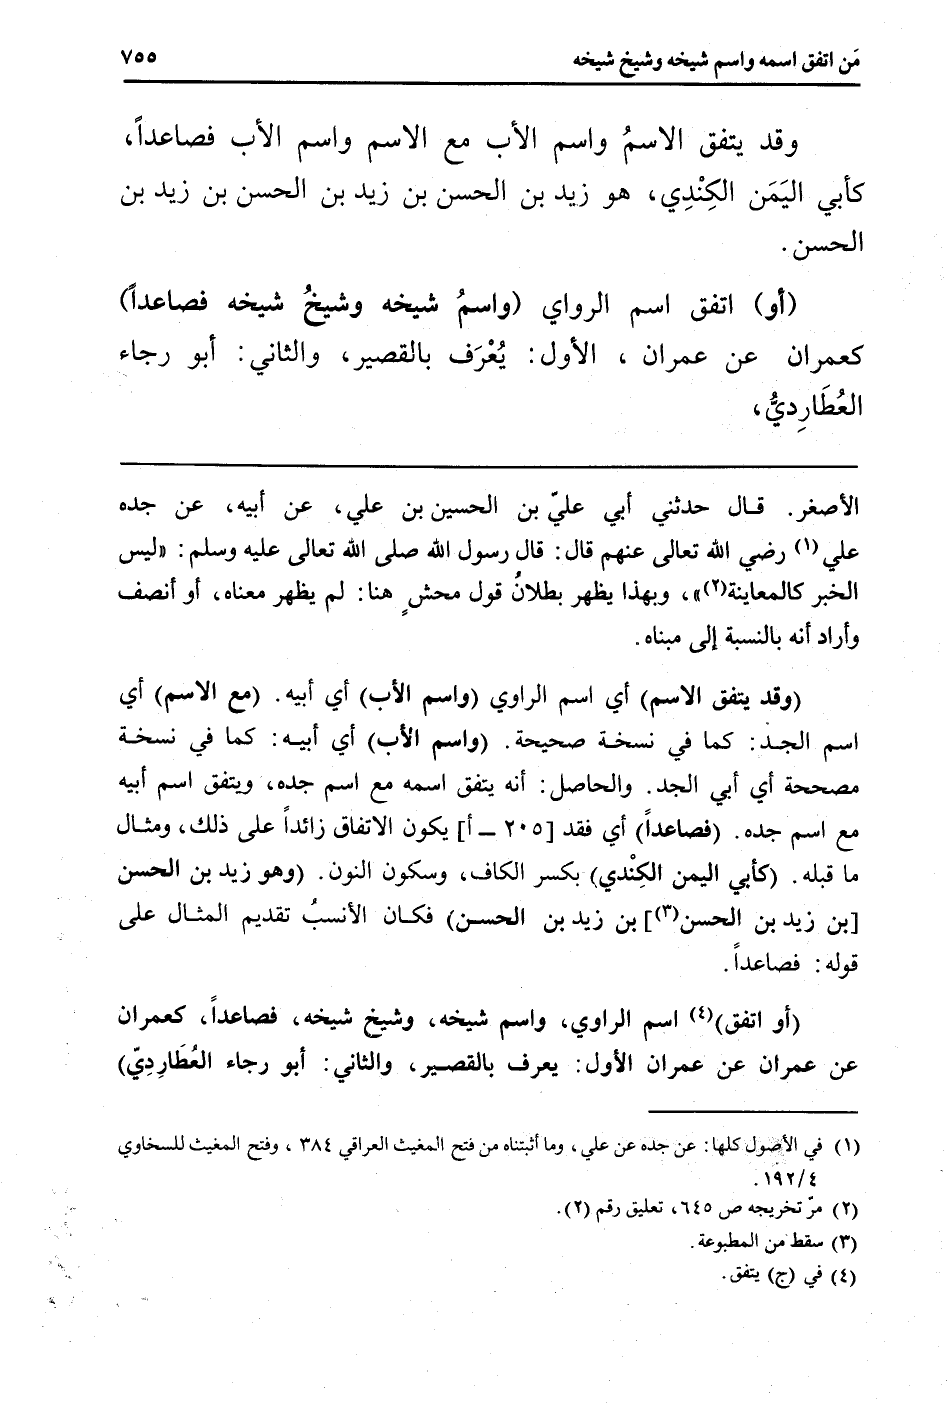 مَن اتفق اسمه واسم شيخه وشيخ شيخه ٧٥٥
وقد يتفق الاسمُ واسم الأب مع الاسم واسم الأب فصاعداً،
كأبي اليَمَن الكِنْدِي، هو زيد بن الحسن بن زيد بن الحسن بن زيد بن
الحسن.
(أو) اتفق اسم الرواي (واسمُ شيخه وشيخُ شيخه فصاعداً)
كعمران عن عمران ، الأول: يُعْرَف بالقصير، والثاني: أبو رجاء
العُطَارِديُّ،
الأصغر. قال حدثني أبي عليّ بن الحسين بن علي، عن أبيه، عن جده
علي(١) رضي الله تعالى عنهم قال: قال رسول الله صلى الله تعالى عليه وسلم: «ليس
الخبر كالمعاينة(٢)»، وبهذا يظهر بطلانُ قول محشٍ هنا: لم يظهر معناه، أو أنصف
وأراد أنه بالنسبة إلى مبناه.
(وقد يتفق الاسم) أي اسم الراوي (واسم الأب) أي أبيه. (مع الاسم) أي
اسم الجد: كما في نسخة صحيحة. (واسم الأب) أي أبيه: كما في نسخة
مصححة أي أبي الجد. والحاصل: أنه يتفق اسمه مع اسم جده، ويتفق اسم أبيه
مع اسم جده. (فصاعداً) أي فقد [٢٠٥ ــ أ] يكون الاتفاق زائداً على ذلك، ومثال
ما قبله. (كأبي اليمن الكِنْدي) بكسر الكاف، وسكون النون. (وهو زيد بن الحسن
[بن زيد بن الحسن(٣)] بن زيد بن الحسن) فكان الأنسبُ تقديم المثال على
قوله: فصاعداً.
(أو اتفق)(٤) اسم الراوي، واسم شيخه، وشيخ شيخه، فصاعداً، كعمران
عن عمران عن عمران الأول: يعرف بالقصير، والثاني: أبو رجاء العُطَارِدِيّ)
(١) في الأصول كلها: عن جده عن علي، وما أثبتناه من فتح المغيث العراقي ٣٨٤ ، وفتح المغيث للسخاوي
٤/١٩٢.
(٢) مرّ تخريجه ص ٦٤٥، تعليق رقم (٢).
(٣) سقط من المطبوعة.
(٤) في (ج) يتفق.